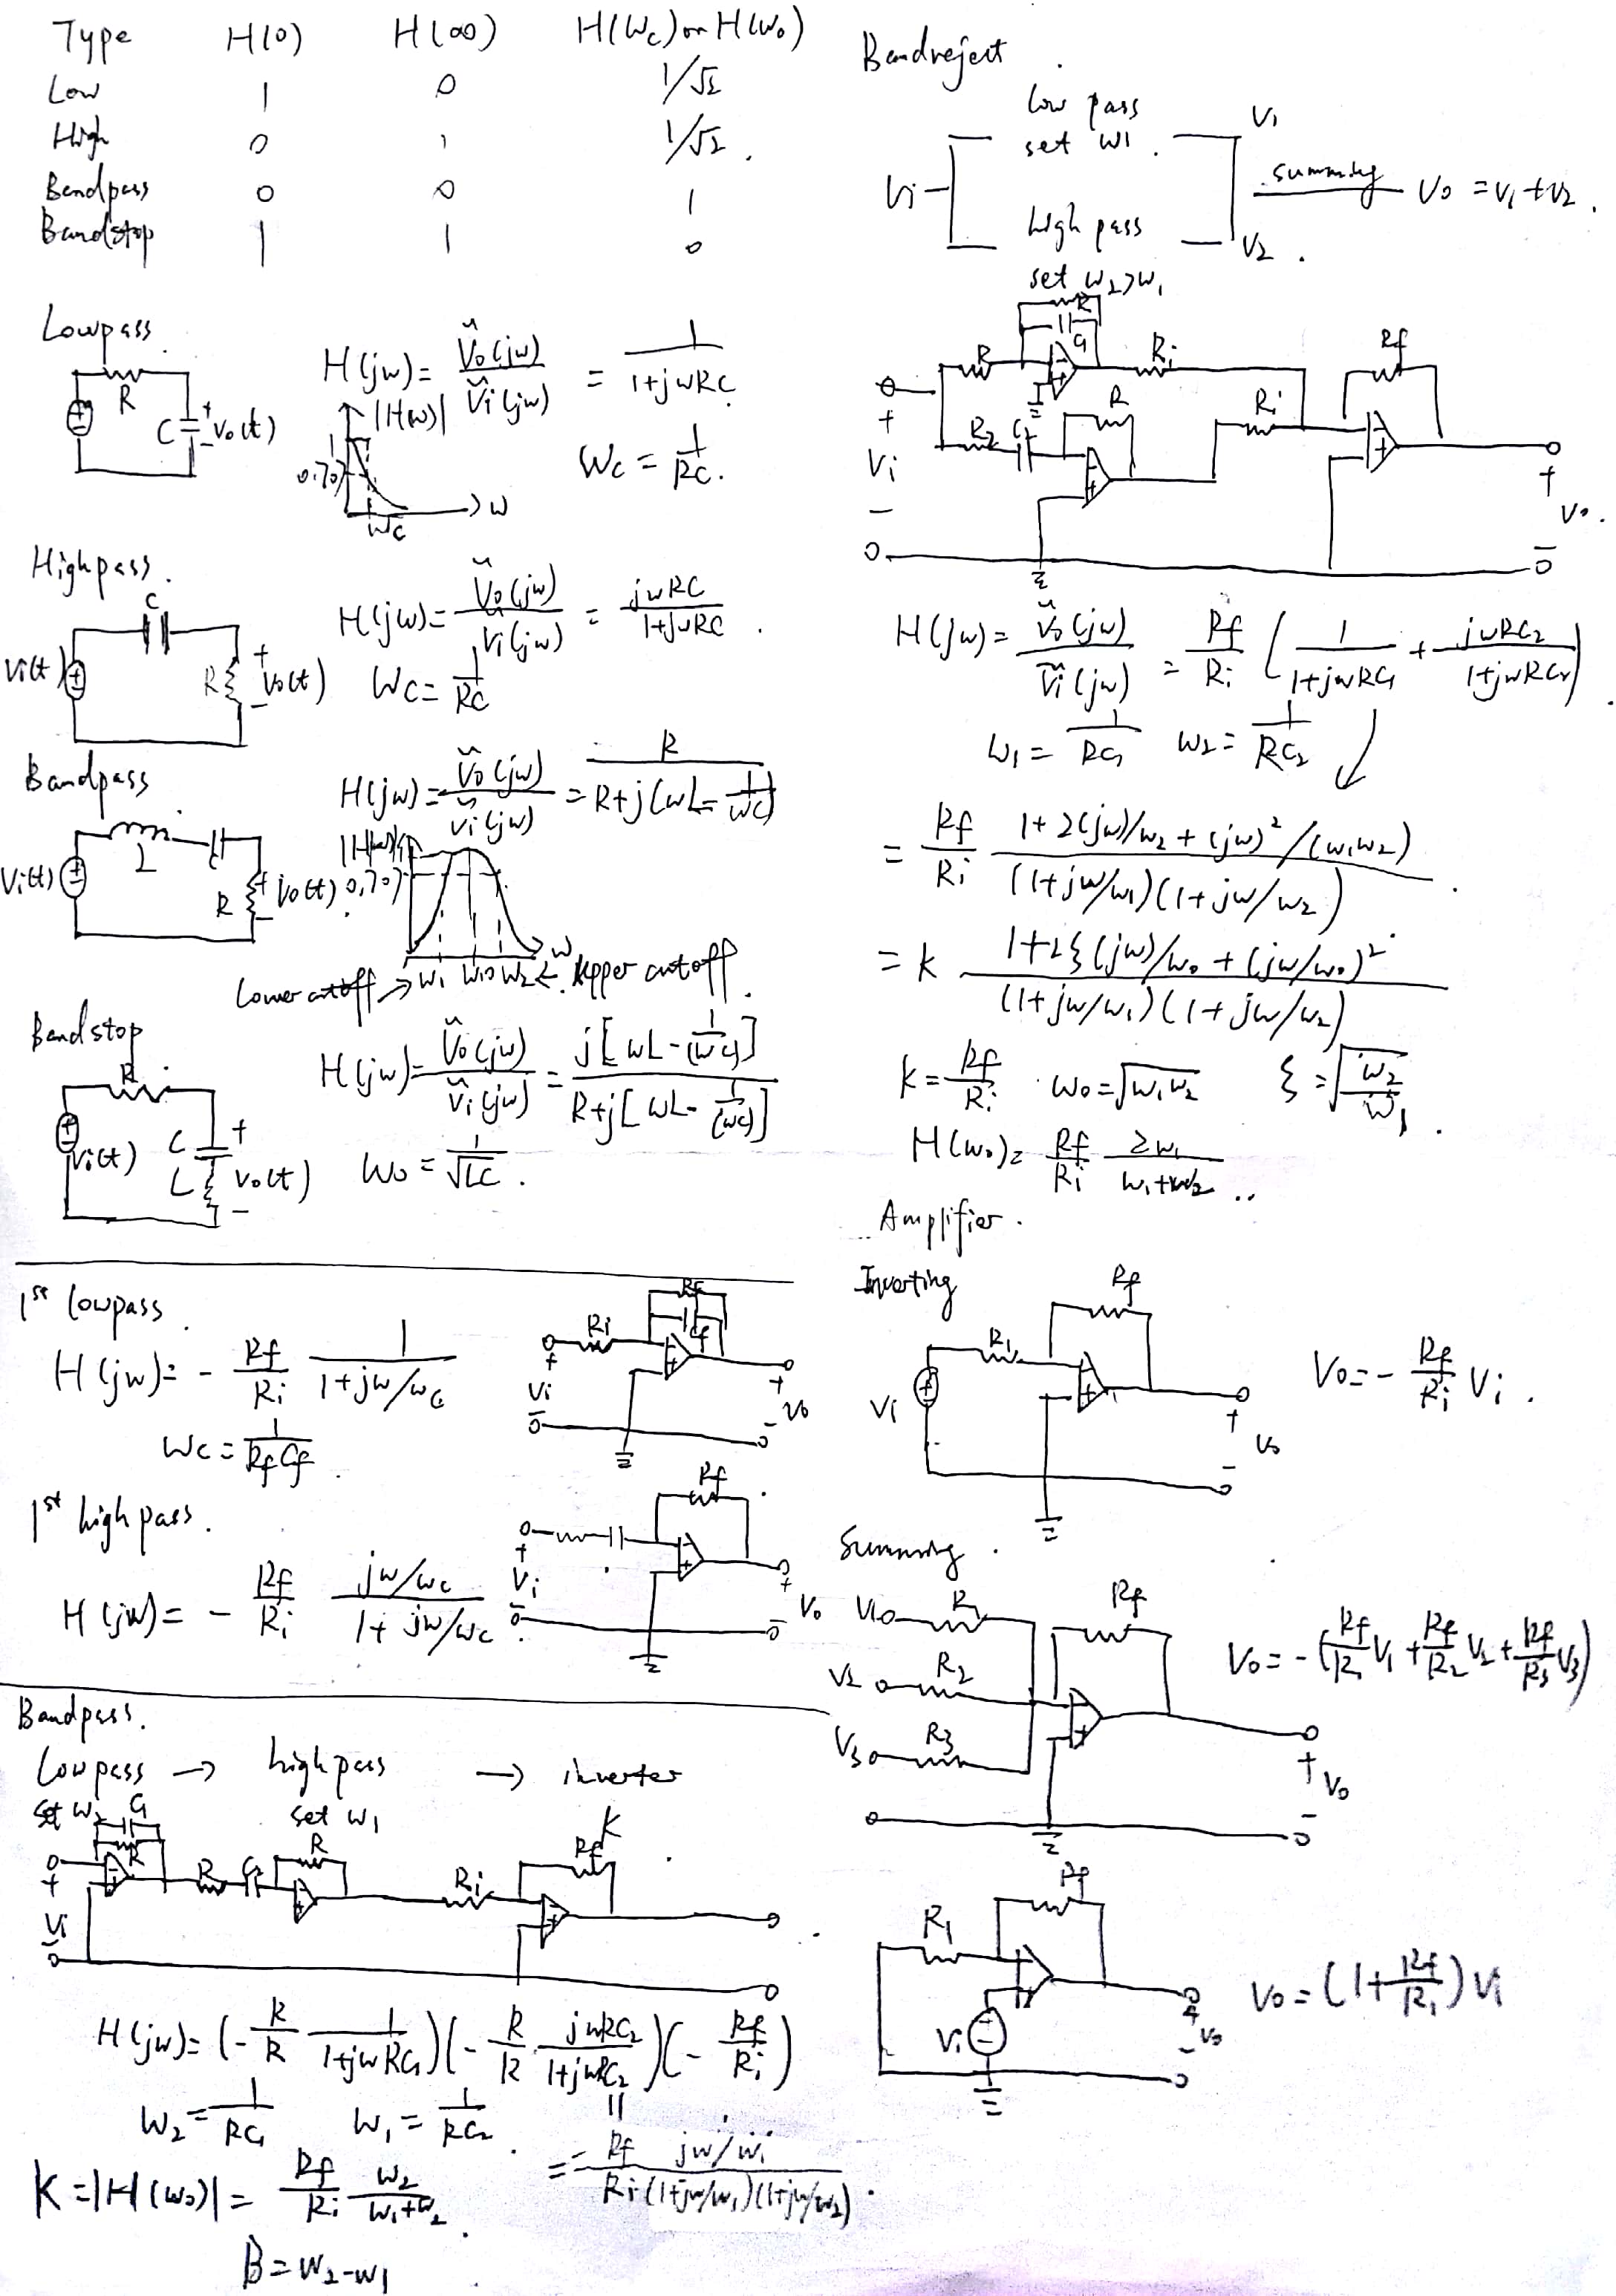 Type H(0) H(∞) H(Wc) or H(W0)
Low 1 0 1/√2
High 0 1 1/√2.
Bandpass 0 0 1
Bandstop 1 1 0
Lowpass
R
C + - Vo(t)
H(jw) = Ṽo(jw)/Ṽi(jw) = 1/(1+jwRC)
|H(w)|
1
0.707
Wc
w
Wc = 1/RC.
Highpass.
C
Vi(t) R + Vo(t) -
H(jw) = Ṽo(jw)/Ṽi(jw) = jwRC/(1+jwRC).
Wc = 1/RC
Bandpass
L
Vi(t) R + Vo(t) -
H(jw) = Ṽo(jw)/Ṽi(jw) = R/(R+j(wL-1/wC))
|H(w)| 1
0.707
w
Lower cutoff → w1 w0 w2 ← Upper cutoff.
Bandstop
R
Vi(t) C L + Vo(t) -
H(jw) = Ṽo(jw)/Ṽi(jw) = j[wL-1/(wC)]/(R+j[wL-1/(wC)])
W0 = 1/√LC.
1st lowpass
H(jw) = - Rf/Ri 1/(1+jw/wc)
Wc = 1/RfCf.
Ri Rf Cf
+ Vi - + Vo -
1st highpass.
H(jw) = - Rf/Ri (jw/wc)/(1+jw/wc).
Rf
+ Vi - + Vo -
Bandpass.
Lowpass → highpass → inverter
set w2 set w1
C1 R R C2 R Ri Rf K
+ Vi -
H(jw) = (- R/R 1/(1+jwRC1))(- R/R jwRC2/(1+jwRC2))(- Rf/Ri)
W2 = 1/RC1 W1 = 1/RC2.
= Rf/Ri (jw/w1)/((1+jw/w1)(1+jw/w2)).
K = |H(w0)| = Rf/Ri w2/(w1+w2).
B = w2-w1
Bandreject.
low pass
set w1.
V1
Vi summing Vo = v1+v2.
high pass
V2.
set w2>w1
R R C1 Ri Rf
R2 C2 R Ri
+ Vi - + Vo. -
H(jw) = Ṽo(jw)/Ṽi(jw) = Rf/Ri (1/(1+jwRC1) + jwRC2/(1+jwRC2)).
w1 = 1/RC1 w2 = 1/RC2
= Rf/Ri (1+2(jw)/w2+(jw)²/(w1w2))/((1+jw/w1)(1+jw/w2)).
= k (1+2ξ(jw)/w0+(jw/w0)²)/((1+jw/w1)(1+jw/w2))
k = Rf/Ri. w0 = √w1w2 ξ = √(w2/w1).
H(w0) = Rf/Ri 2w1/(w1+w2)..
Amplifier.
Inverting
Rf
R1
Vi + Vo -
Vo = - Rf/Ri Vi.
Summing.
V1 R1 Rf
V2 R2
V3 R3
+ Vo -
Vo = -(Rf/R1 V1 + Rf/R2 V2 + Rf/R3 V3)
Rf
R1
Vi + Vo -
Vo = (1+Rf/R1)Vi